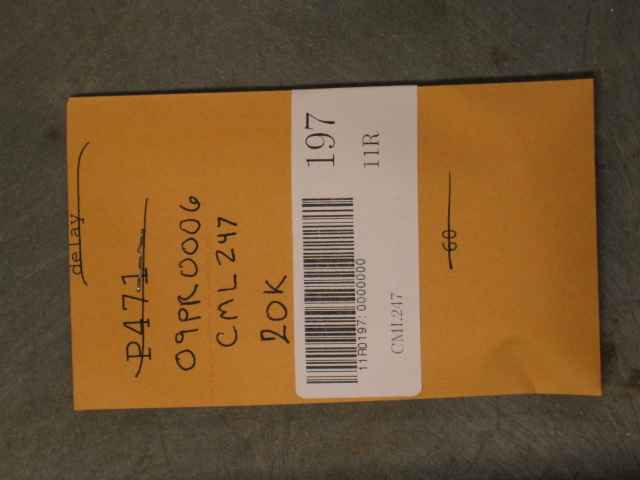 delay
P471
09PR0006
CML 247
20K
197
11R
11R0197:0000000
CML247
60